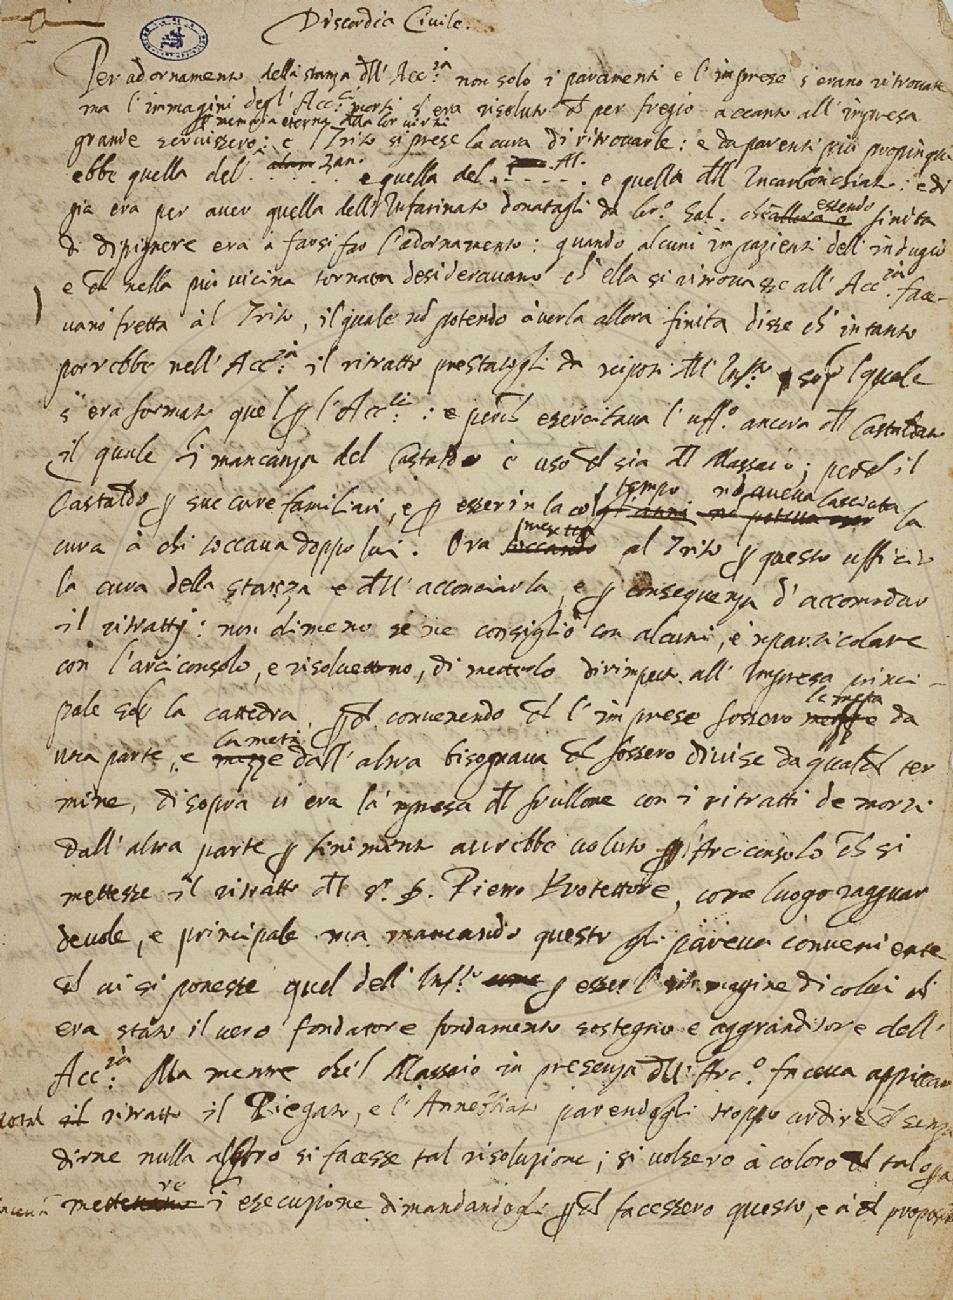 Discordia Civile.
Per adornamento della stanza dll' Acc:ia non solo i paramenti e l'imprese s'erano ritrovate
ma l'immagini degl' Acc:ci morti s'era risoluto ch per fregio accanto all' impresa
p memoria eterna della lor virtù
grande servissero: e 'l Trito si prese la cura di ritrovarle: e da parenti più propinqui
ebbe quella del' . . . . Zan. . . . e quella del . . . . . . e quella dll Incarbonchiato: e di
già era per aver quella dell' Infarinato donatagli da Sal. essendo finita
di dipignere era a farsi far l'adornamento: quando alcuni impazienti dell' indugio
e ch nella più vicina tornata desideravano ch' ella si ritrovasse all' Acc:ia face-
vano fretta al Trito, il quale nō potendo averla allora finita disse ch' intanto
porrebbe nell' Acc:ia il ritratto prestatogli da nipoti dll' Inf:to sop' l quale
s'era formato quel p l'Acc:ia: e perch esercitava l'uff:o ancora dl Castaldo
il quale ī mancanza del Castaldo è uso ch sia dl Massaio; perch il
Castaldo p sue cure familiari, e p esser in la col tempo nō aveva lasciata la
cura à chi toccava doppo lui. Ora al Trito p questo ufficio
la cura della stanza e dll' acconciarla, e p conseguenza d'accomodar
il ritratti: non dimeno se ne consigliò con alcuni, e 'n particolare
con l'arciconsolo, e risolvettono, di metterlo dirimpetto all' Impresa princi-
pale sop la cattedra. pch convenendo ch l'imprese fossero la metà da
una parte, e la metà dall' altra bisognava ch fossero divise da qualch ter
mine, di sopra vi era la 'mpresa dl frullone con i ritratti de morti
dall' altra parte p finimento avrebbe voluto l'Arciconsolo ch si
mettesse il ritratto dl S. D. Pietro Protettore, come luogo ragguar
devole, e principale ma mancando questo gli pareva conveniente
ch vi si ponesse quel dell' Inf:to p esser l'immagine di colui ch
era stato il vero fondatore fondamento sostegno e aggranditore dell'
Acc:ia Ma mentre che 'l Massaio in presenza dll' Arc:o faceva appiccar
il ritratto il Piegato, e l'Annebbiato parendogli troppo ardire ch senza
dirne nulla altro si facesse tal risoluzione; si volsero à coloro ch tal op̄a
ī esecuzione dimandandogli pch facessero questo, e à ch proposito